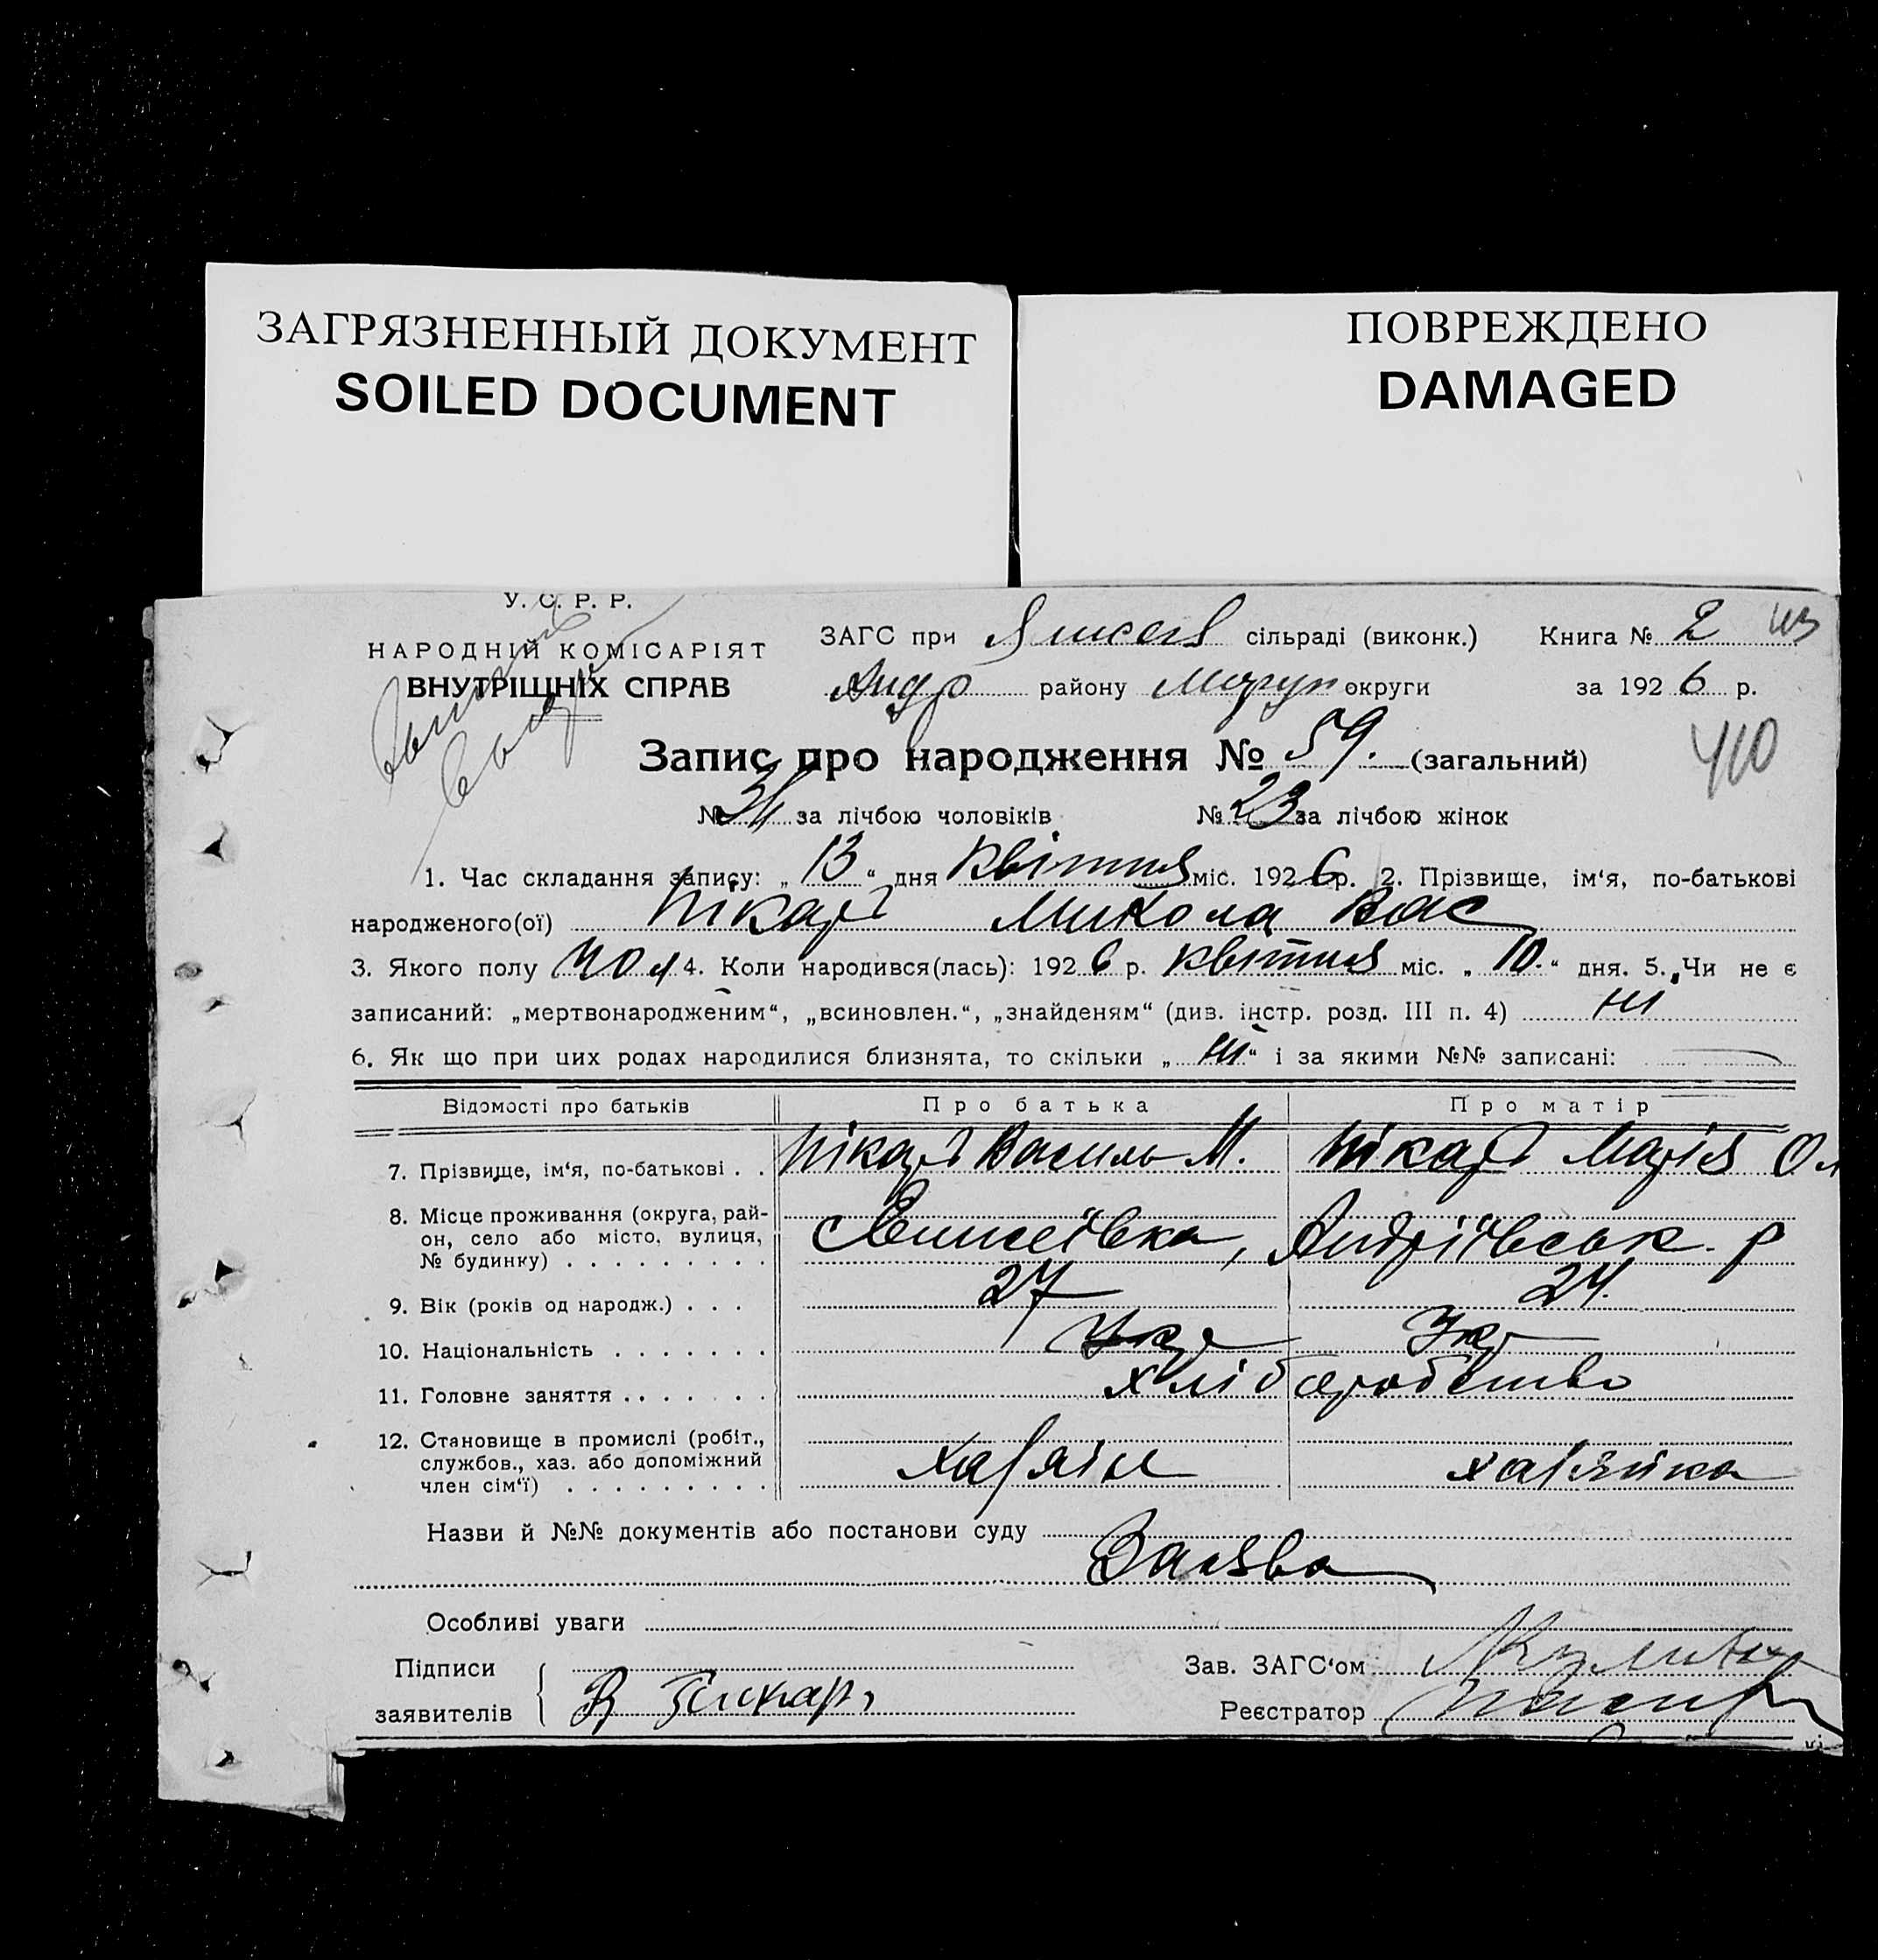 ЗАГРЯЗНЕННЫЙ ДОКУМЕНТ
SOILED DOCUMENT
ПОВРЕЖДЕНО
DAMAGED
У. С. Р. Р.
НАРОДНІЙ КОМІСАРІЯТ
ВНУТРІШНІХ СПРАВ
ЗАГС при сільраді (виконк.) Книга № 2
Андр району Маріуп округи за 1926 р.
Запис про народження № 59. (загальний)
410
№ за лічбою чоловіків № 23 за лічбою жінок
1. Час складання запису: „13“ дня квітня міс. 1926 р. 2. Прізвище, ім‘я, по-батькові
народженого(ої) Пікар Микола Вас
3. Якого полу чол 4. Коли народився(лась): 1926 р. квітня міс. „10.“ дня. 5. Чи не є
записаний: „мертвонародженим“, „всиновлен.“, „знайденям“ (див. інстр. розд. III п. 4) ні
6. Як що при цих родах народилися близнята, то скільки „ні“ і за якими №№ записані:
Відомості про батьків Про батька Про матір
7. Прізвище, ім‘я, по-батькові . . Пікар Василь М. Пікар Марія Ол
8. Місце проживання (округа, рай-
он, село або місто, вулиця,
№ будинку) . . . . . . . . . Єлисеївка, Андріївськ. р
9. Вік (років од народж.) . . . 27 24.
10. Національність . . . . . . . Укр Укр
11. Головне заняття . . . . . . . хліборобство
12. Становище в промислі (робіт.,
службов., хаз. або допоміжний
член сім‘ї) . . . . . . . . . хазяїн хазяйка
Назви й №№ документів або постанови суду
Заява
Особливі уваги
Підписи
заявителів В Пикарь
Зав. ЗАГС‘ом
Реєстратор